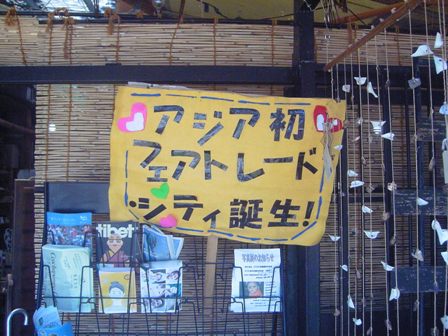 アジア初
フェアトレード
シティ誕生!
tibet
写真展のお知らせ